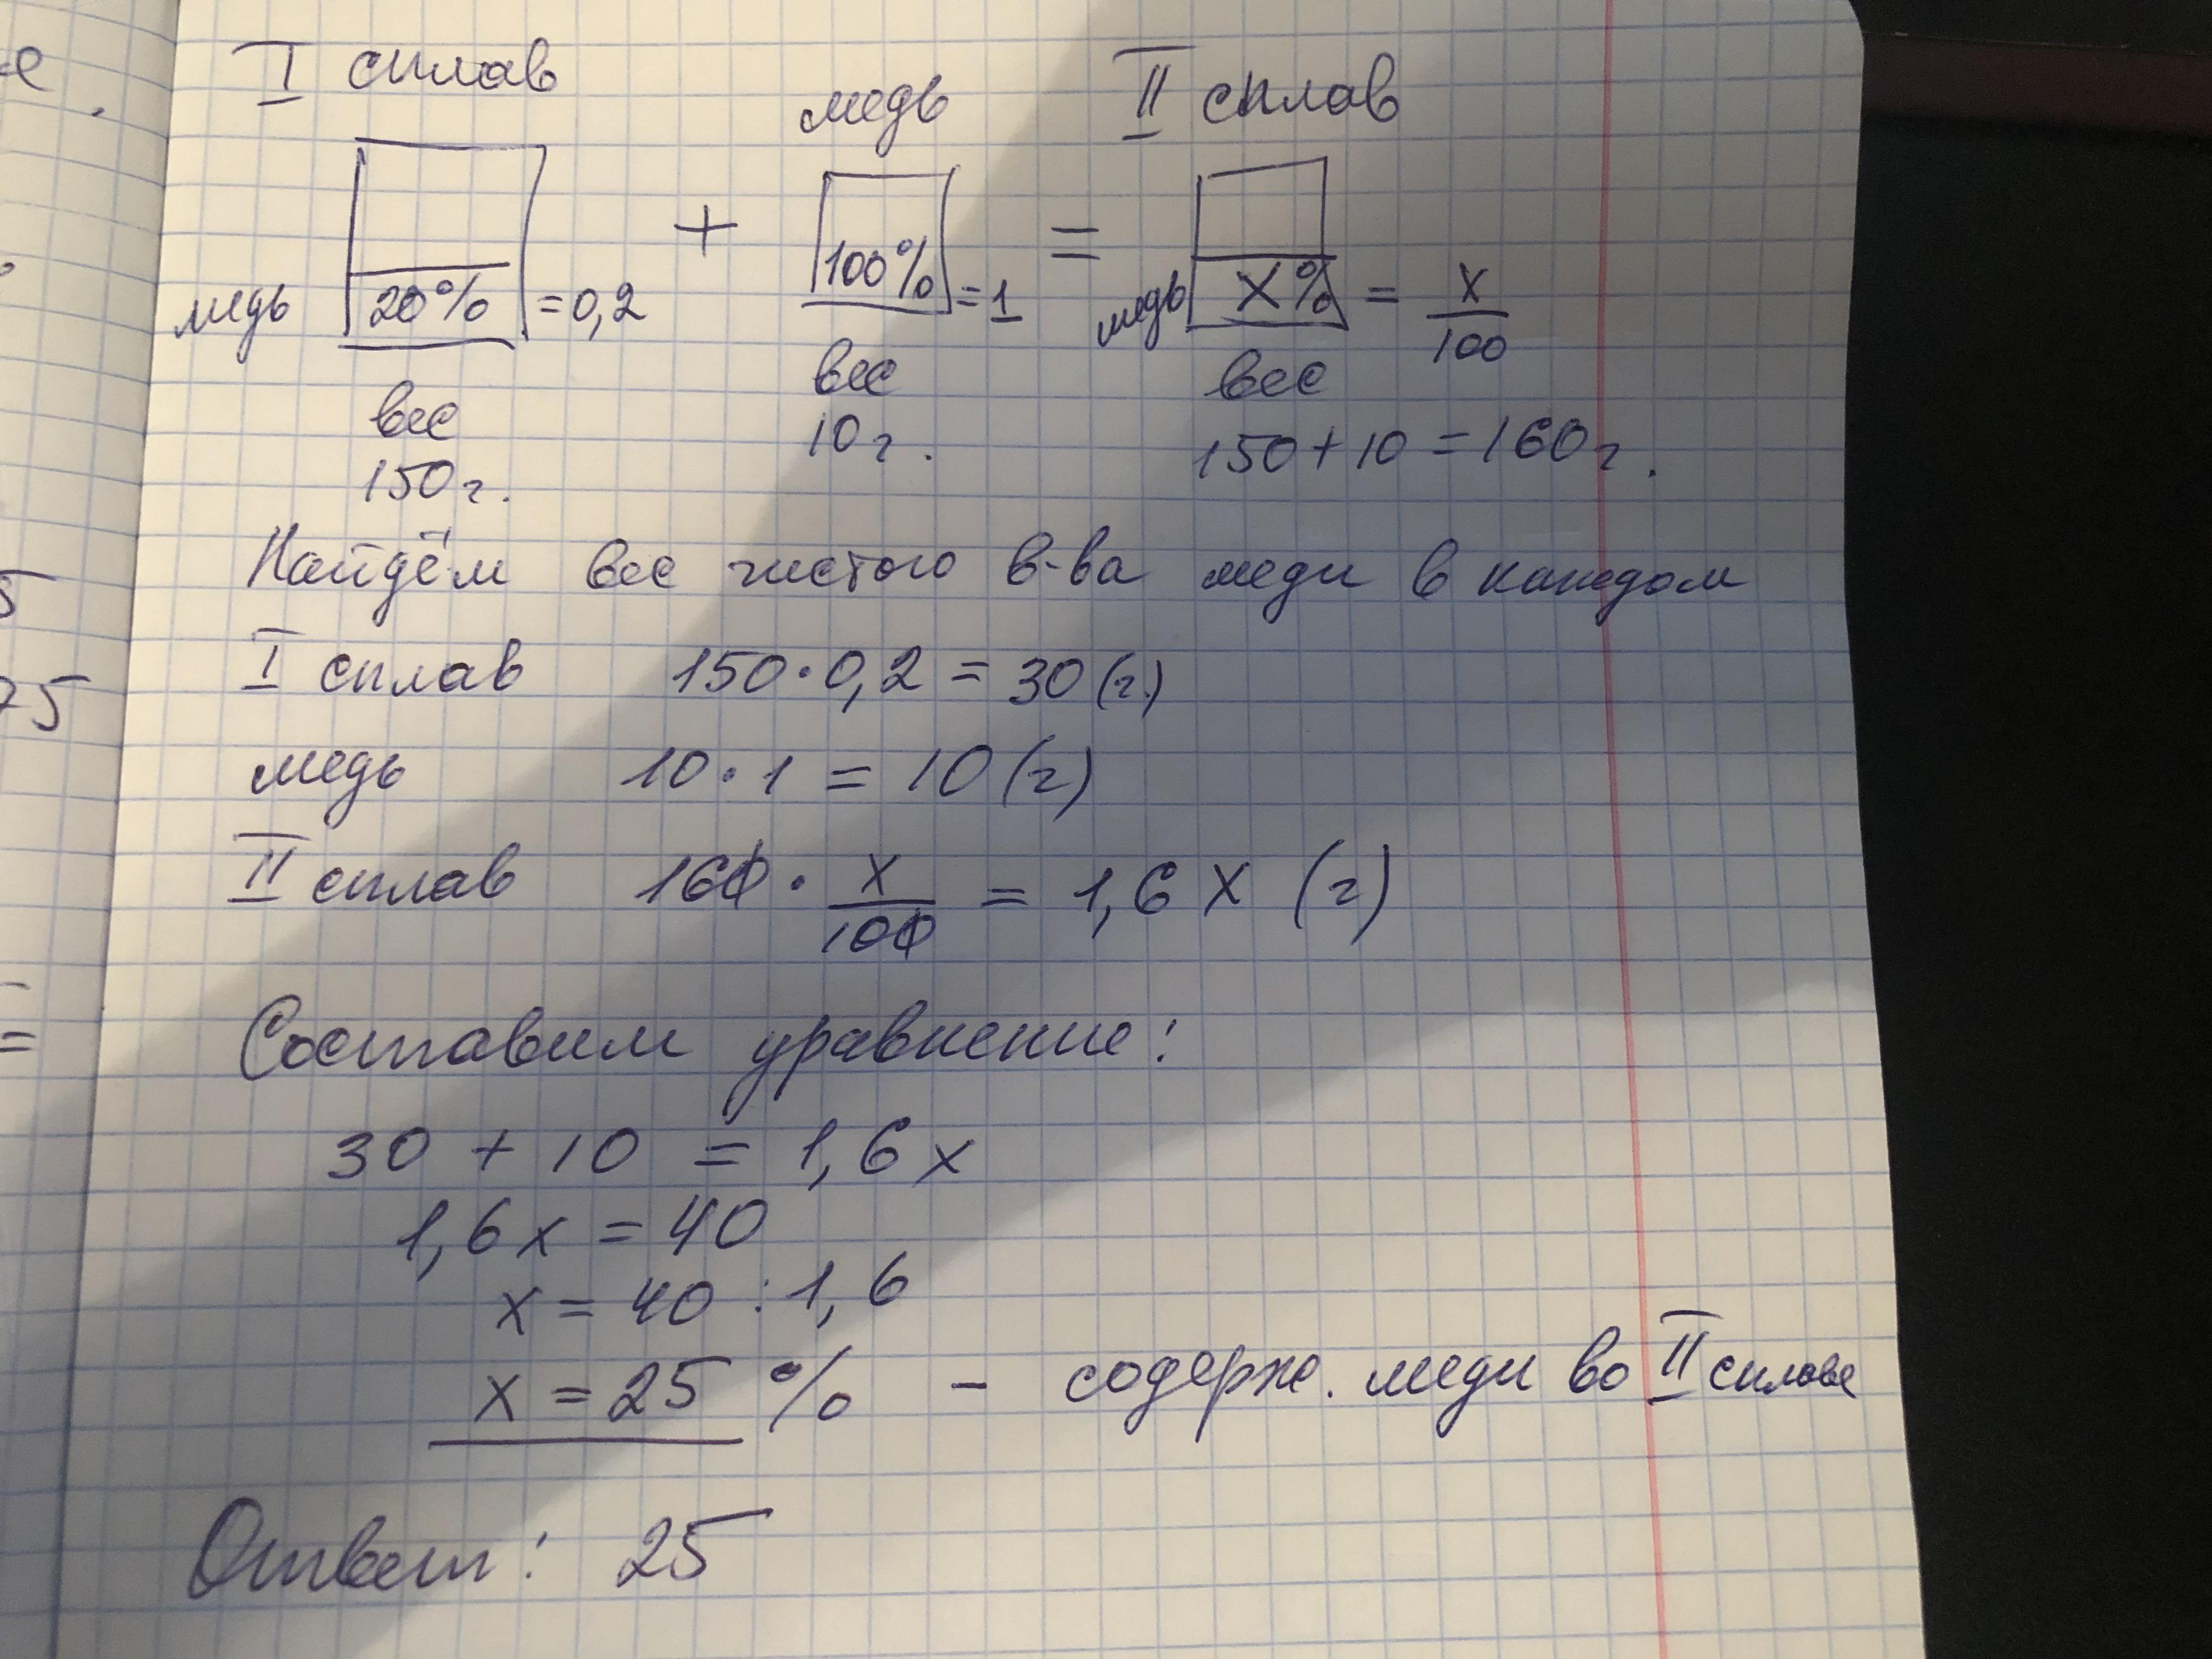 I сплав медь II сплав
медь 20% = 0,2 + 100% = 1 = медь X% = x/100
вес вес вес
150г. 10г. 150+10=160г.
Найдём вес чистого в-ва меди в каждом
I сплав 150·0,2 = 30 (г.)
медь 10·1 = 10 (г)
II сплав 160 · x/100 = 1,6 x (г)
Составим уравнение:
30 + 10 = 1,6 x
1,6 x = 40
x = 40 : 1,6
x = 25 % - содерж. меди во II сплаве
Ответ: 25